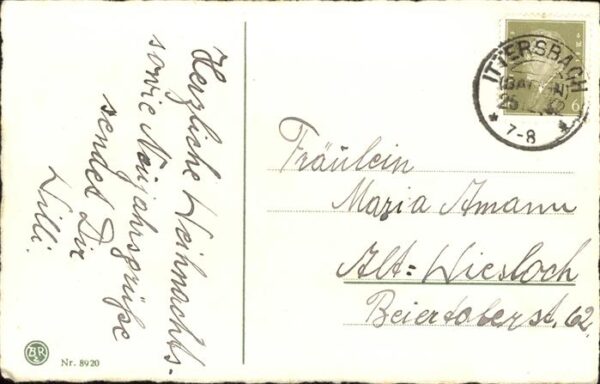 Herzliche Weihnachts-
sowie Neujahrsgrüße
sendet Dir
Willi.
Nr. 8920
ITTERSBACH
25
7-8
6
Fräulein
Maria Amann
Alt-Wiesloch
Beiertoberst. 62.